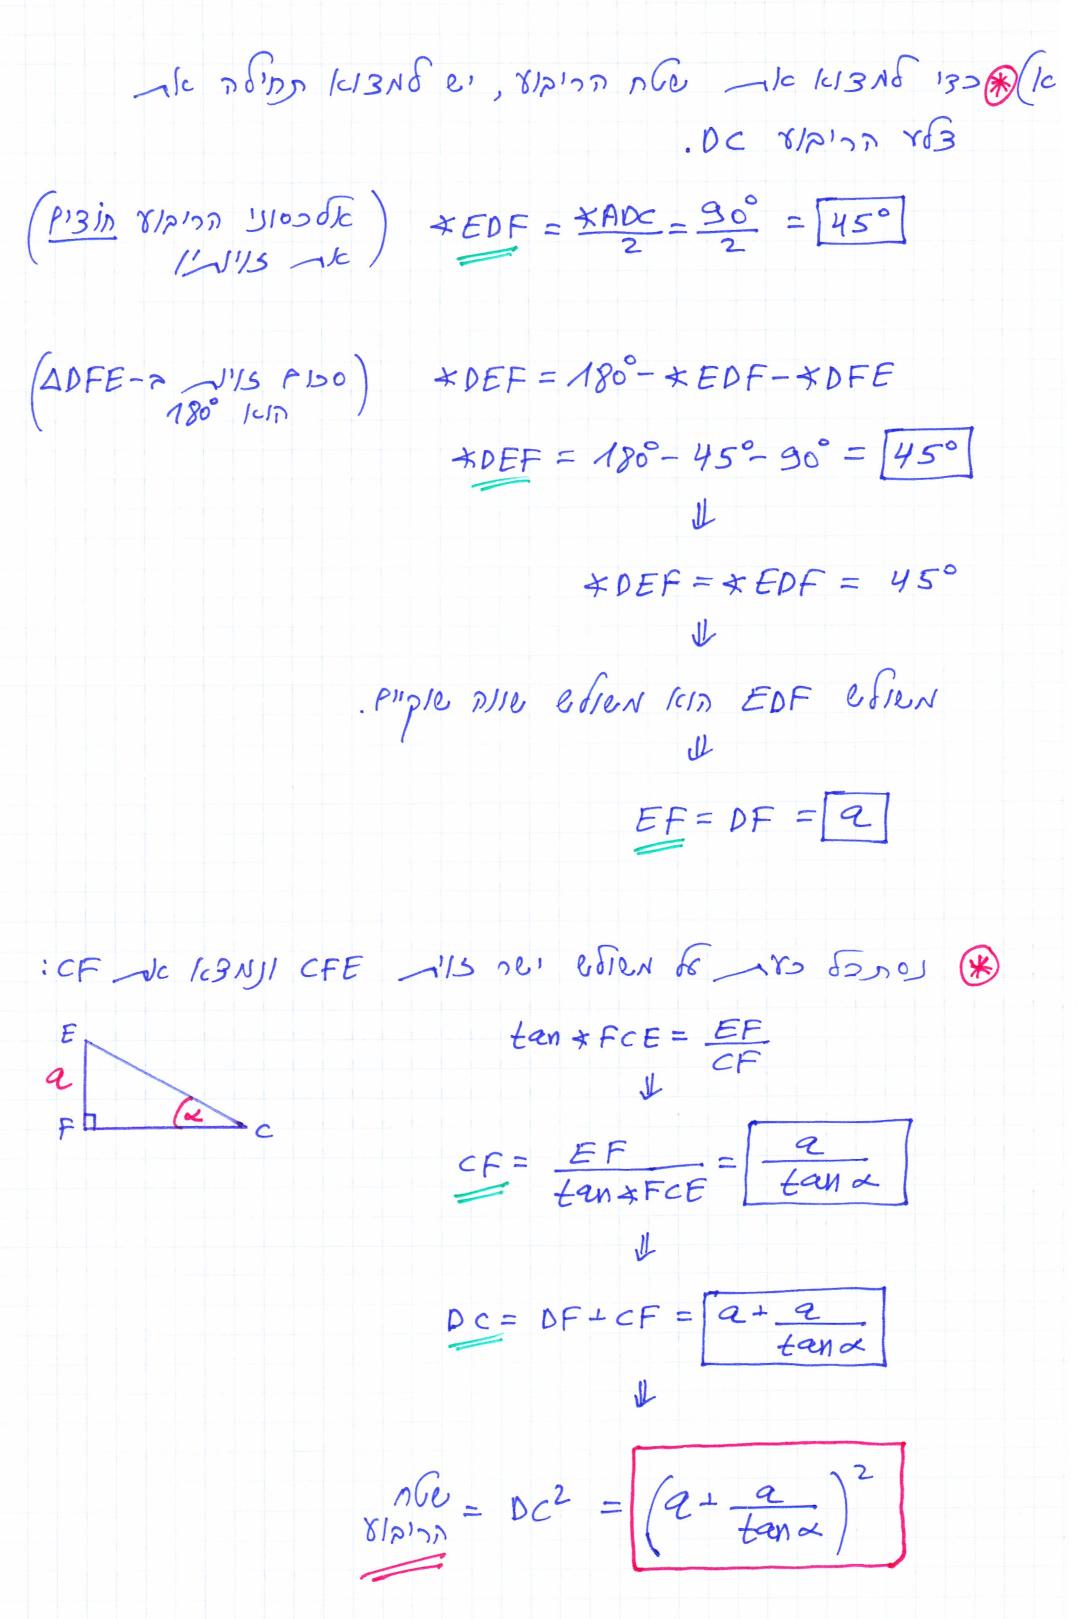 א) * כדי למצוא את שטח הריבוע, יש למצוא תחילה את
צלע הריבוע DC.
∢EDF = ∢ADC/2 = 90°/2 = 45° (אלכסוני הריבוע חוצים
את זוויותיו)
∢DEF = 180° - ∢EDF - ∢DFE (סכום זווית ב-ΔDFE
הוא 180°)
∢DEF = 180° - 45° - 90° = 45°
⇓
∢DEF = ∢EDF = 45°
⇓
משולש EDF הוא משולש שווה שוקיים.
⇓
EF = DF = a
* נסתכל כעת על משולש ישר זווית CFE ונמצא את CF:
tan∢FCE = EF/CF
⇓
CF = EF/tan∢FCE = a/tanα
⇓
DC = DF + CF = a + a/tanα
⇓
שטח הריבוע = DC² = (a + a/tanα)²
E
a
F
α
C